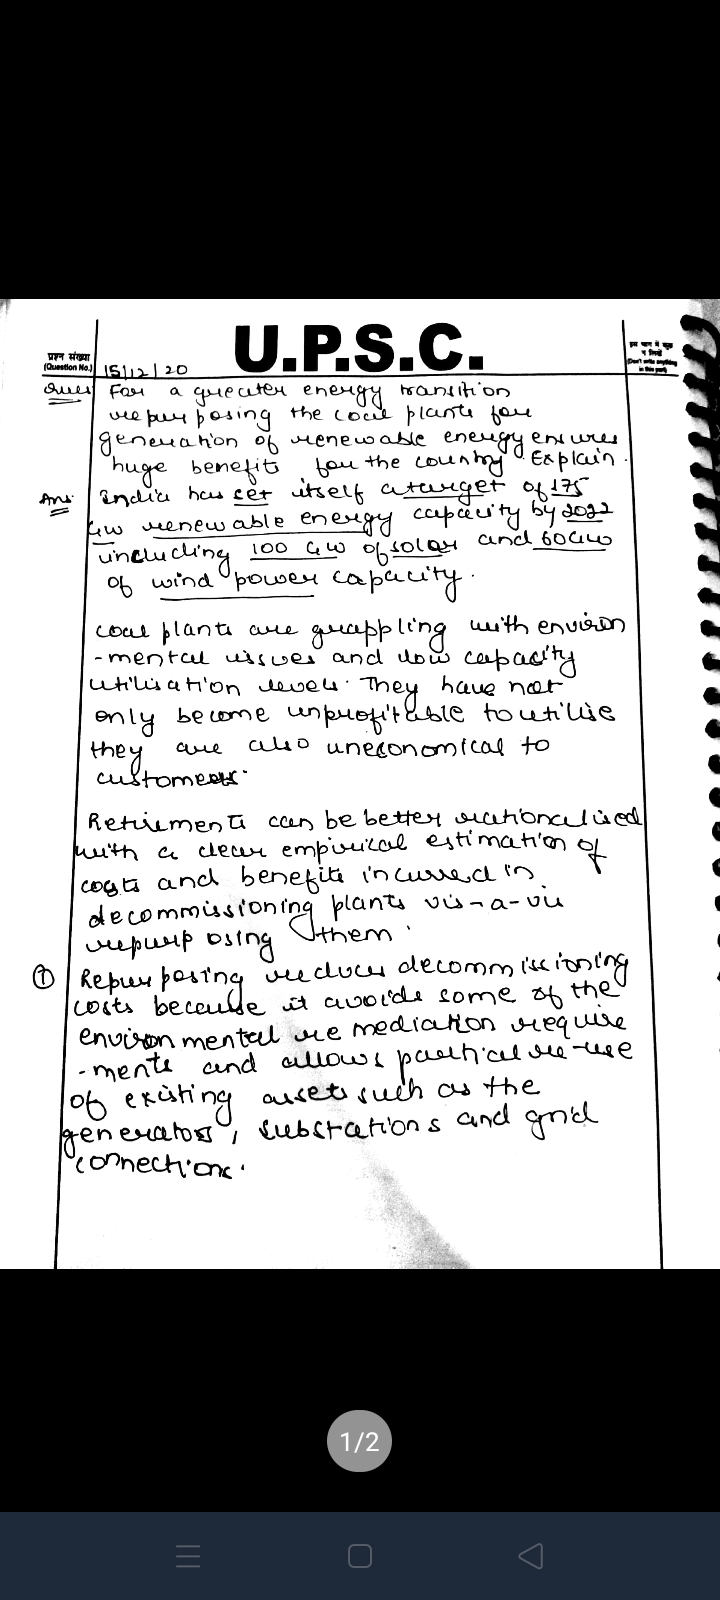 U.P.S.C.
प्रश्न संख्या
(Question No.)
15/12/20
इस भाग में कुछ
न लिखें
(Don't write anything
in this part)
Ques For a greater energy transition
repurposing the coal plants for
generation of renewable energy ensures
huge benefits for the country. Explain.
Ans: India has set itself a target of 175
GW renewable energy capacity by 2022
including 100 GW of solar and 60GW
of wind power capacity.
Coal plants are grappling with environ
-mental issues and low capacity
utilisation levels. They have not
only become unprofitable to utilise
they are also uneconomical to
customers.
Retirements can be better rationalised
with a clear empirical estimation of
costs and benefits incurred in
decommissioning plants vis-a-vis
repurposing them.
① Repurposing reduces decommissioning
costs because it avoids some of the
environmental remediation require
-ments and allows partial re-use
of existing assets such as the
generators, substations and grid
connections.
1/2